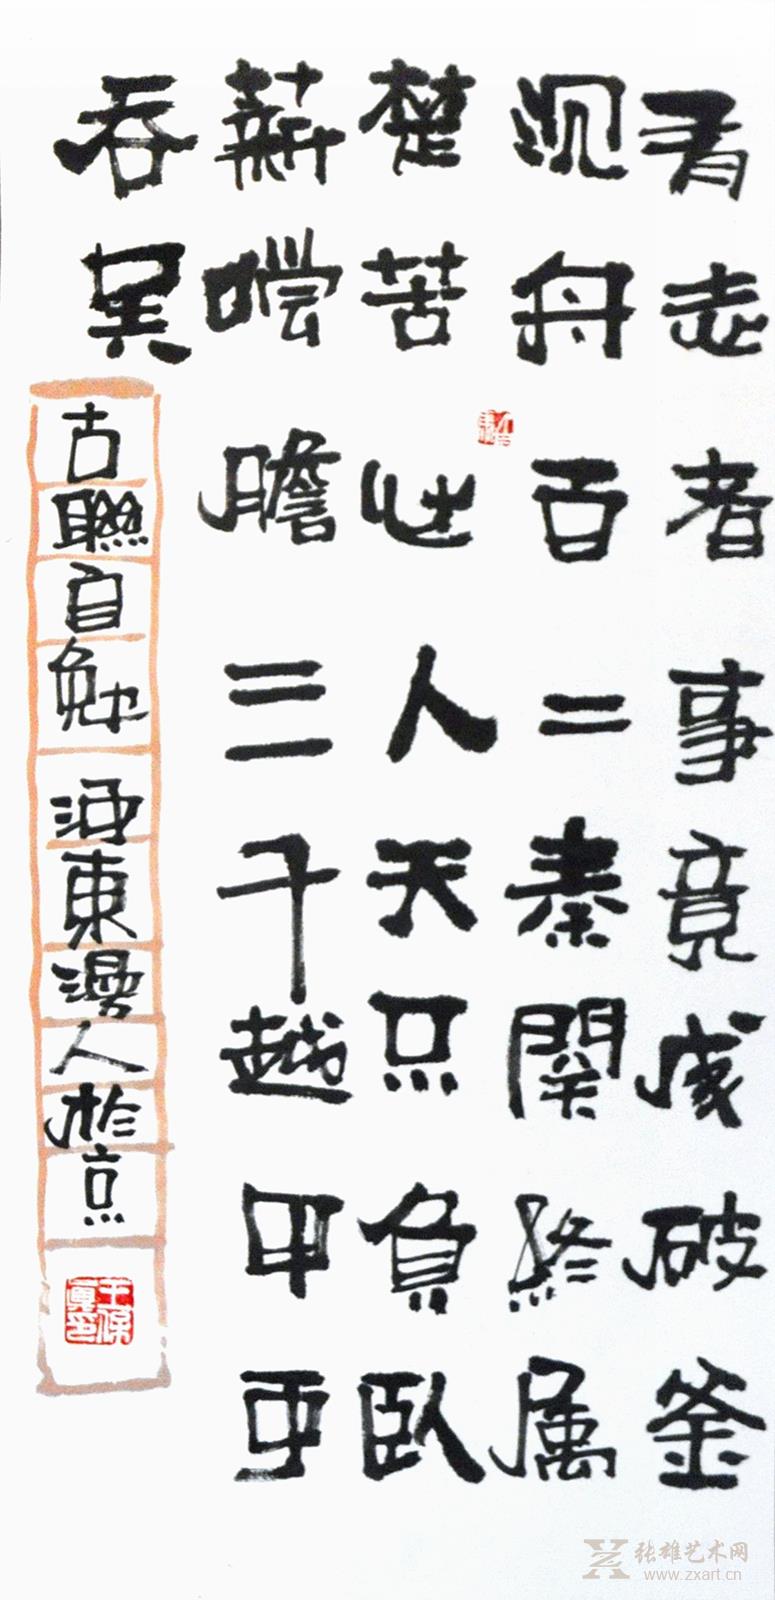 有志者事竟成破釜
沉舟百二秦関終属
楚苦心人天不負臥
薪嚐膽三千越甲可
吞吳
古聯自勉 河東漫人於京
张雄艺术网
www.zxart.cn